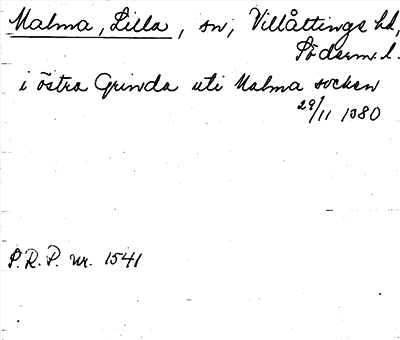 Malma, Lilla, sn, Villåttings hd,
Söderm. l.
i östra Grinda uti Malma socken
29/11 1380
S.R.P. nr. 1541